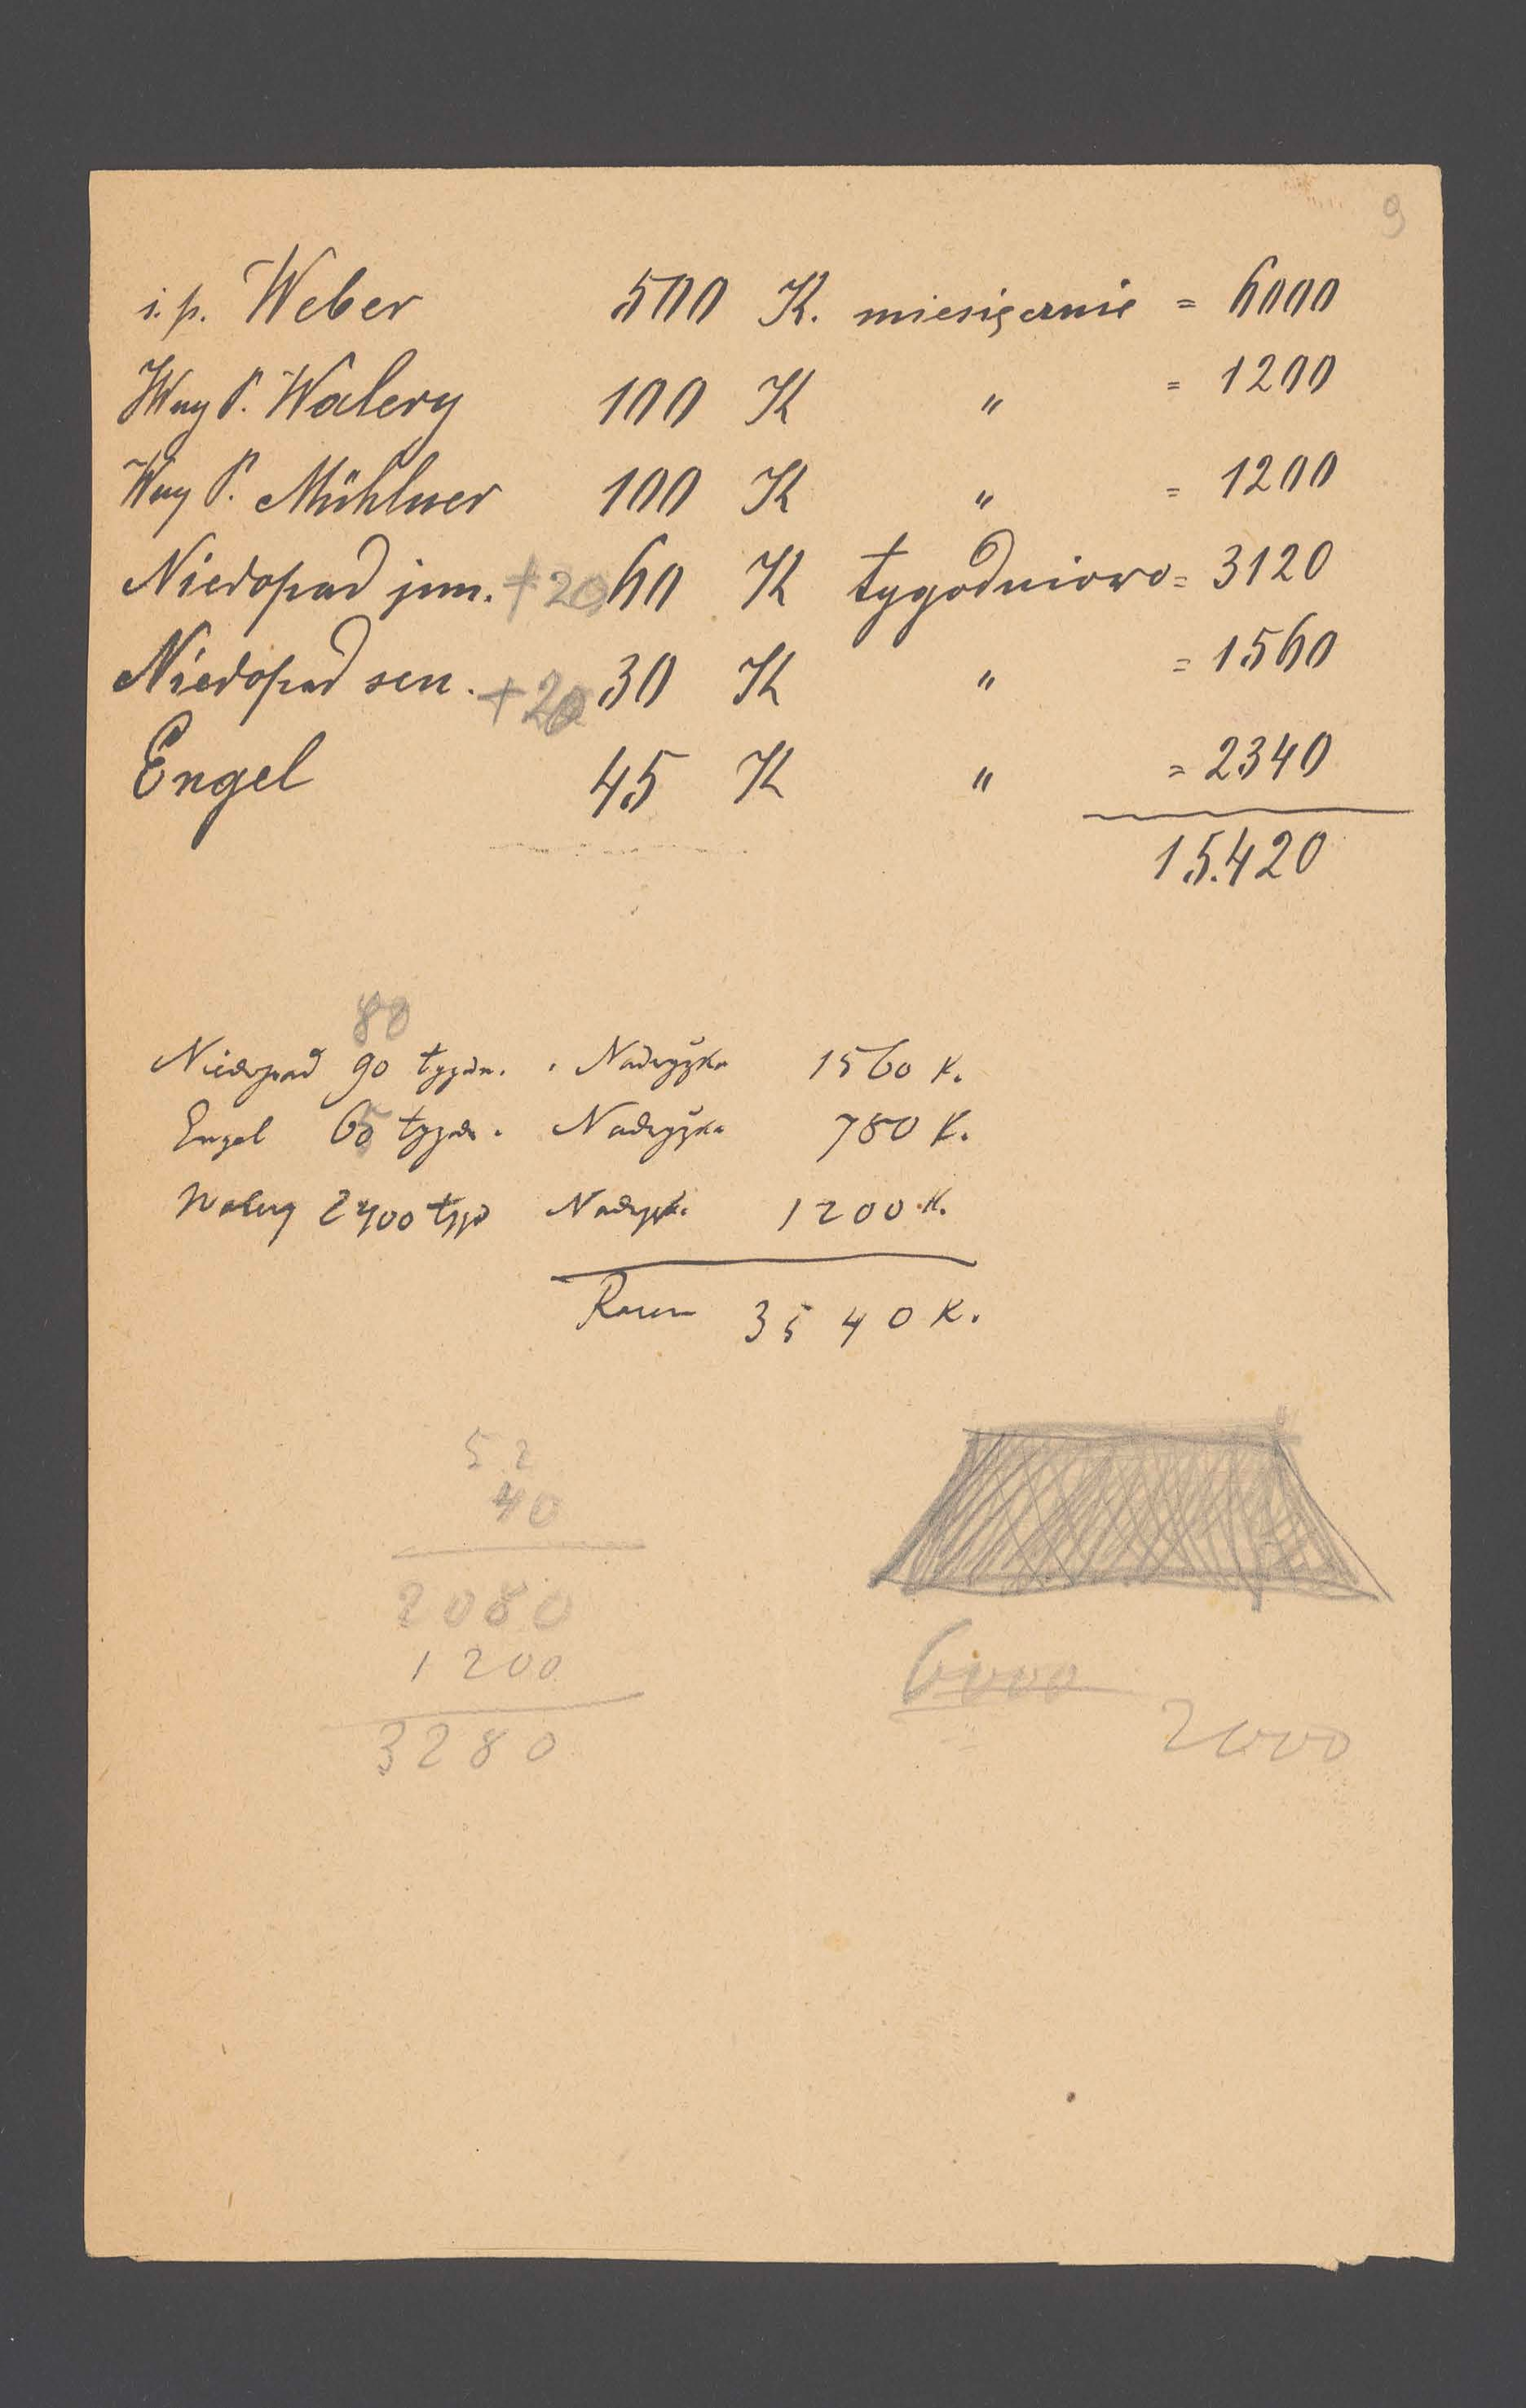 9
i.p. Weber 500 K. miesięcznie = 6000
Wny P. Walery 100 K " = 1200
Wny P. Mühlner 100 K " = 1200
Niedopad jun. +20 60 K tygodniowo = 3120
Niedopad sen. +20 30 K " = 1560
Engel 45 K " = 2340
15.420
80
Niedopad 90 tygdn. Nadwyżka 1560 K.
Engel tygdn. Nadwyżka 780 K.
Walery 2400 tyd Nadwyżk. 1200 K.
Razem 3540 K.
52
40
2080
1200
3280
6000
2000